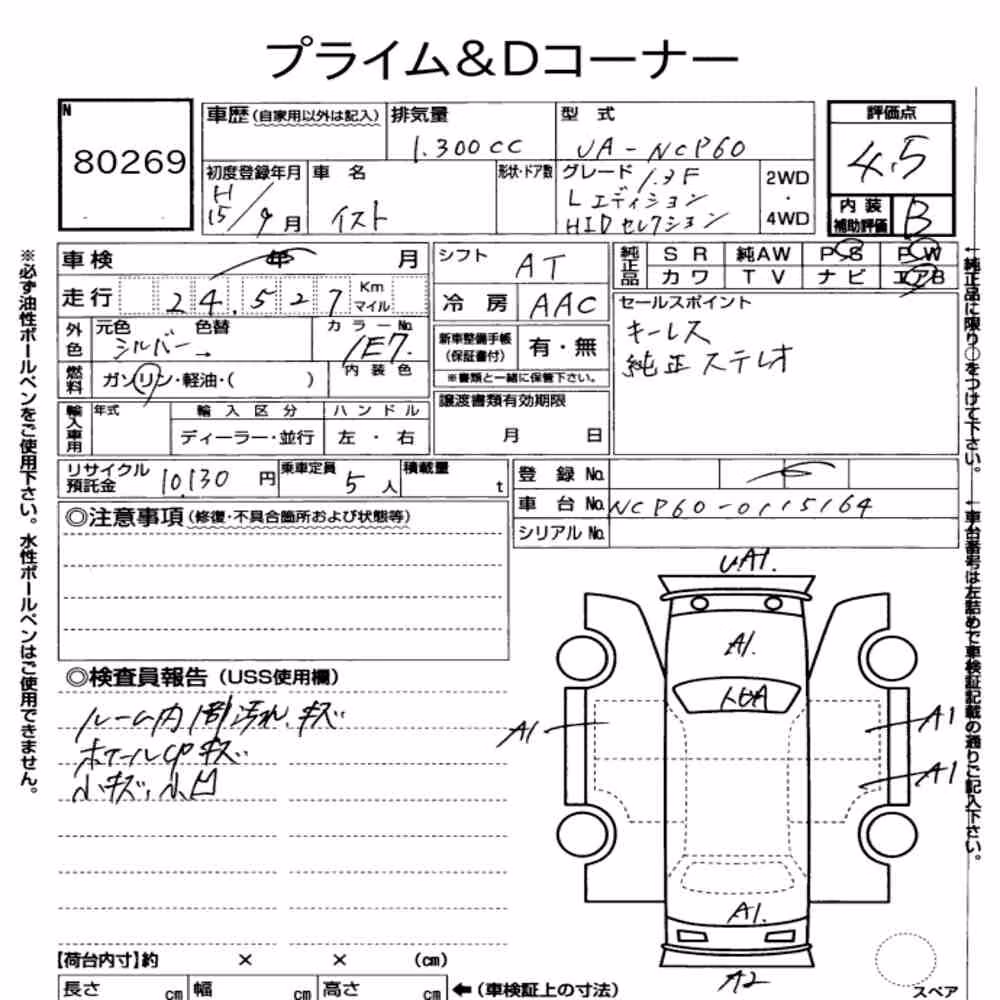 プライム&Dコーナー
N
80269
車歴(自家用以外は記入)
排気量
1.300cc
型 式
UA-NCP60
評価点
4.5
初度登録年月
H
15/9月
車 名
イスト
形状・ドア数
グレード 1.3F
Lエディション
HIDセレクション
2WD
・
4WD
内装
補助評価
B
車検 年 月
走行 24,527 Km
マイル
外色
元色 色替
シルバー→
カラーNo.
1E7.
内装色
燃料
ガソリン・軽油・( )
輸入車用
年式
輸入区分
ハンドル
ディーラー・並行
左・右
シフト
AT
冷房
AAC
新車整備手帳
(保証書付)
有・無
※書類と一緒に保管下さい。
譲渡書類有効期限
月 日
純正品
SR
純AW
PS
PW
カワ
TV
ナビ
エアB
セールスポイント
キーレス
純正ステレオ
リサイクル
預託金
10,130円
乗車定員
5人
積載量
t
登録No.
車台No.
NCP60-0115164
シリアルNo.
◎注意事項(修復・不具合箇所および状態等)
◎検査員報告(USS使用欄)
ルーム内 1部汚れ、キズ
ホイールCPキズ
小キズ、小凹
UA1.
A1.
A1
A1
A1
A1.
A2
スペア
【荷台内寸】約 × × (cm)
長さ cm
幅 cm
高さ cm
←(車検証上の寸法)
※必ず油性ボールペンをご使用下さい。水性ボールペンはご使用できません。
←純正品に限り○をつけて下さい。
←車台番号は左詰めで車検証記載の通りご記入下さい。